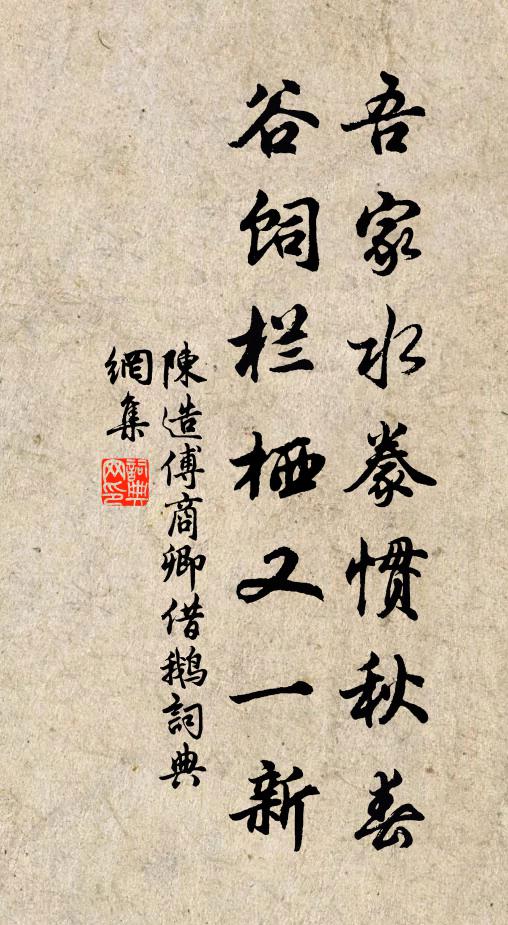 吾家水豢惯秋春
谷饲栏栖又一新
陳造傅商卿借鵝詞典
網集
詞典网印